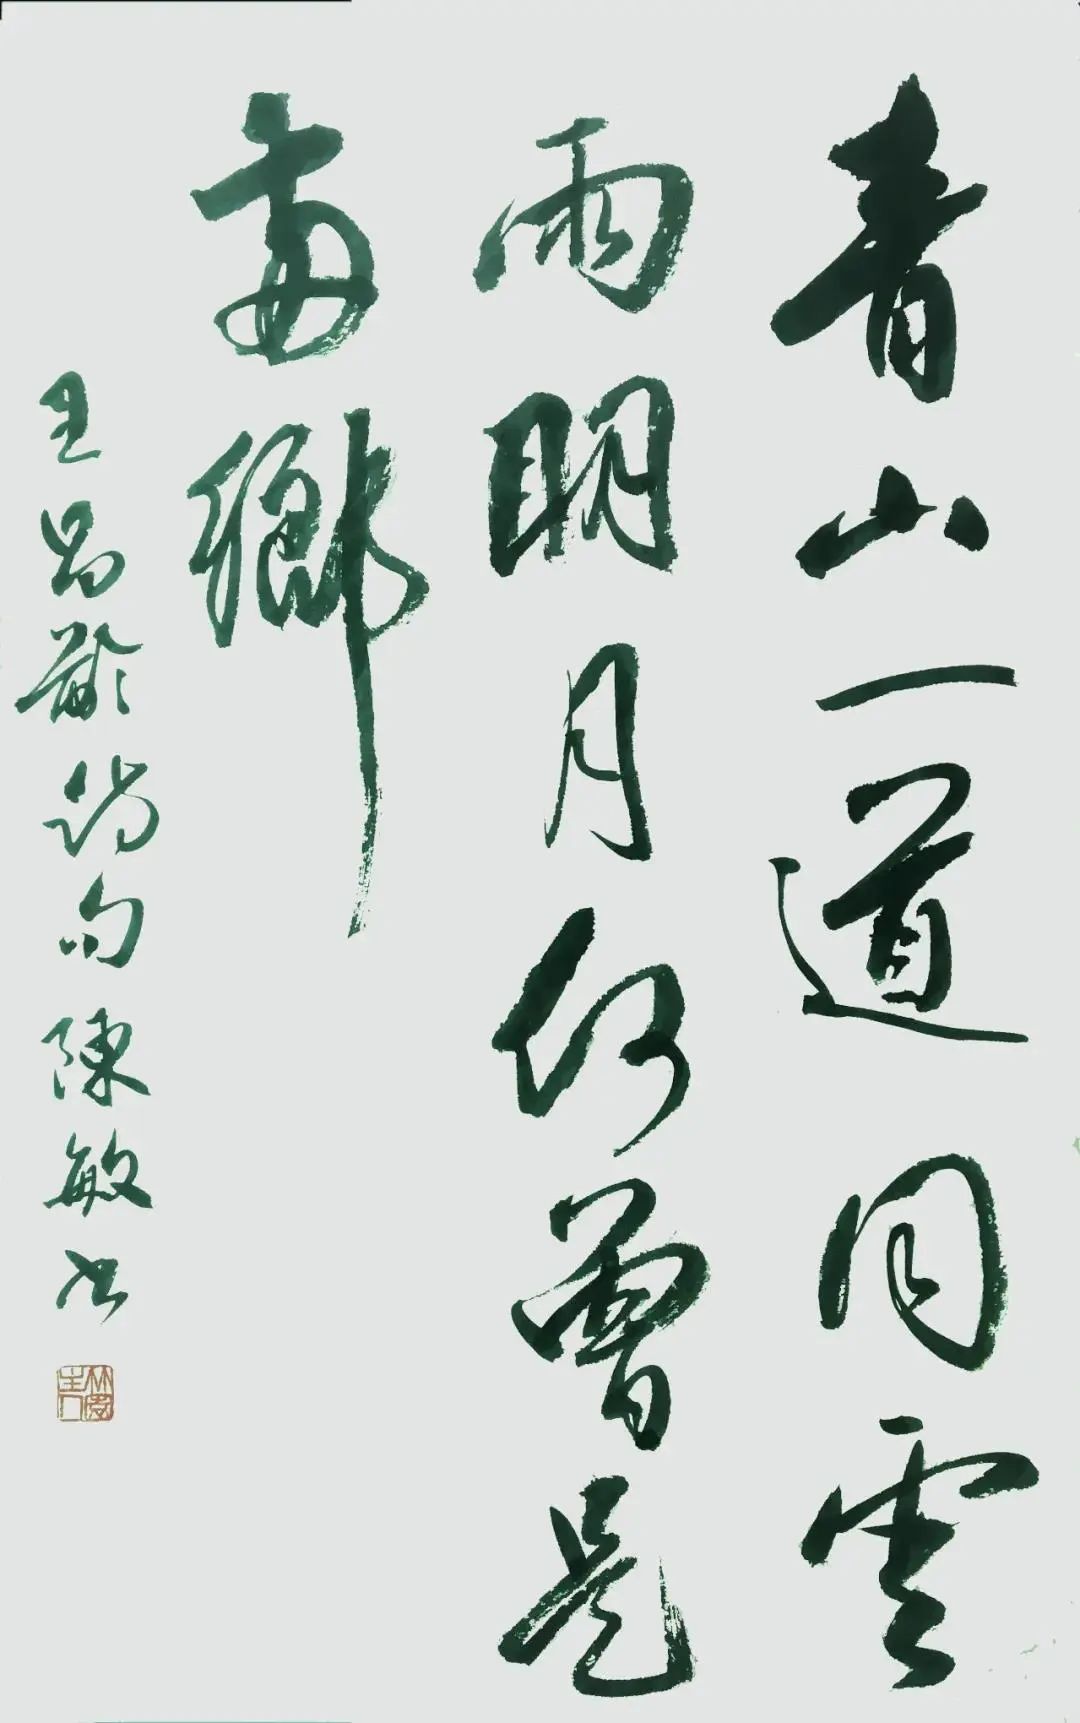 青山一道同雲
雨明月何曾是
兩鄉
王昌齡詩句陳敏书